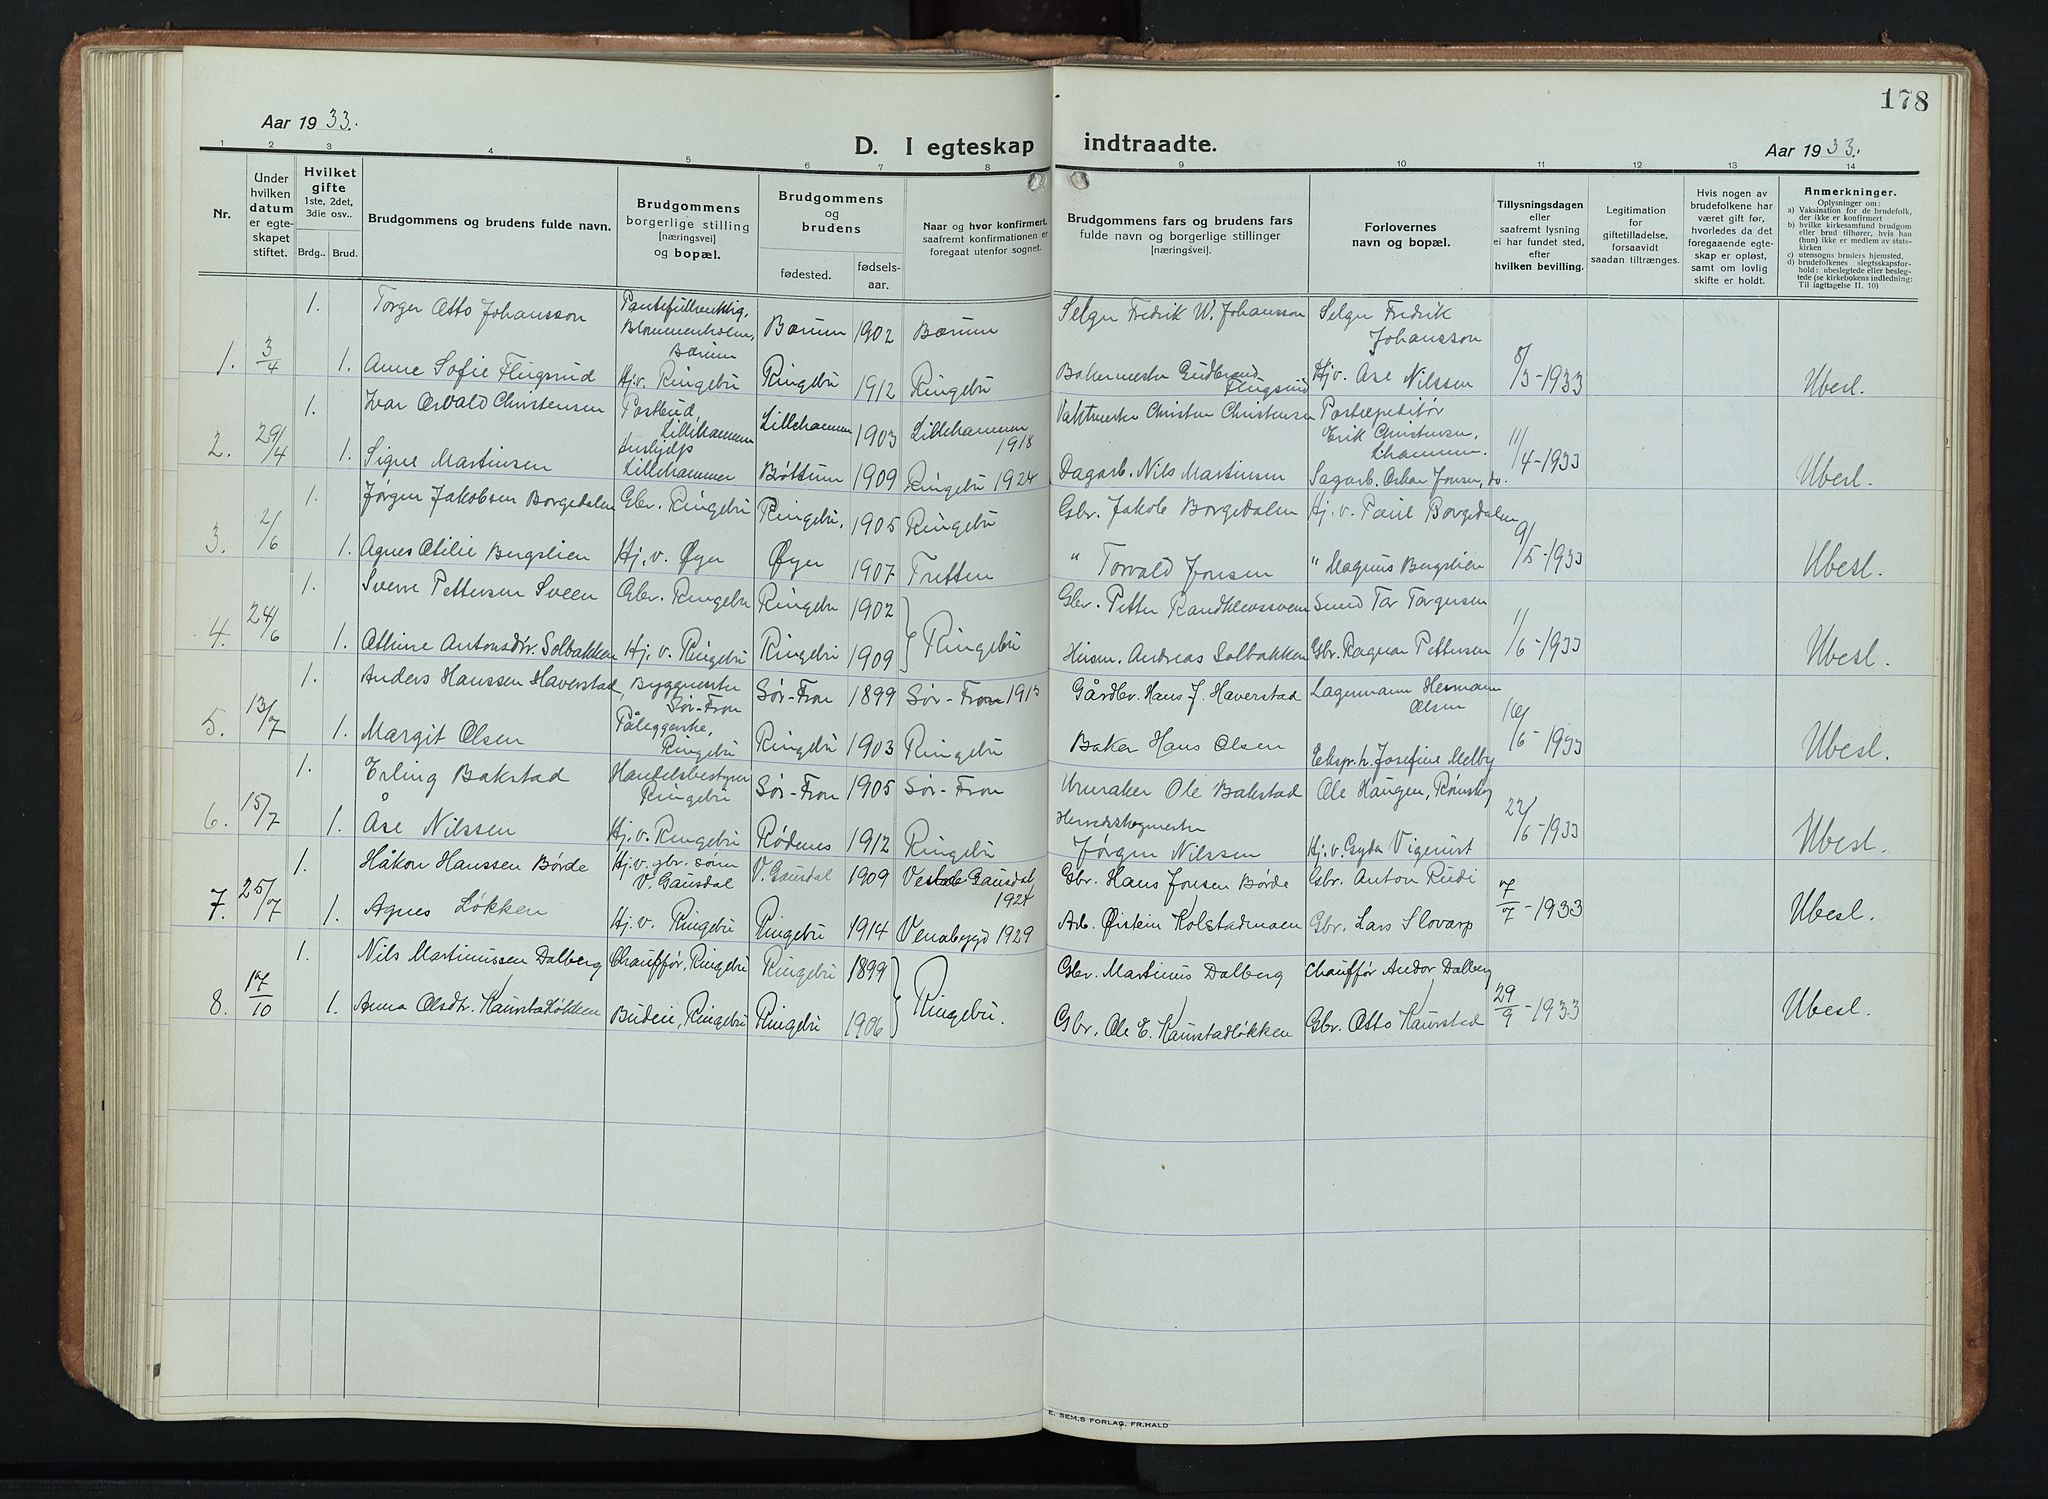 178
Aar 1933.
D. I egteskap indtraadte.
Aar 1933.
1 2 3 4 5 6 7 8 9 10 11 12 13 14
Nr.
Under hvilken datum er egteskapet stiftet.
Hvilket gifte 1ste, 2det, 3die osv..
Brdg.. Brud.
Brudgommens og brudens fulde navn.
Brudgommens borgerlige stilling [næringsvei] og bopæl.
Brudgommens og brudens
fødested. fødsels-aar.
Naar og hvor konfirmert, saafremt konfirmationen er foregaat utenfor sognet.
Brudgommens fars og brudens fars fulde navn og borgerlige stillinger [næringsvei].
Forlovernes navn og bopæl.
Tillysningsdagen eller saafremt lysning ei har fundet sted, efter hvilken bevilling.
Legitimation for giftetilladelse, forsaavidt saadan tiltrænges.
Hvis nogen av brudefolkene har været gift før, hvorledes da det foregaaende egteskap er opløst, samt om lovlig skifte er holdt.
Anmerkninger.
Oplysninger om:
a) Vaksination for de brudefolk, der ikke er konfirmert
b) hvilke kirkesamfund brudgom eller brud tilhører, hvis han (hun) ikke er medlem av statskirken
c) utensogns bruders hjemsted,
d) brudefolkenes slegtsskapsforhold: ubeslegtede eller beslegtede (se kirkebokens indledning: Til iagttagelse II. 10)
1. Torger Otto Johansson Blommenholm, Bærum Bærum 1902 Bærum Selgn Fredrik W. Johansson Selgn Fredrik Johansson
1. 3/4 1. Anne Sofie Flugsrud Hj.v. Ringebu Ringebu 1912 Ringebu Bakermester Gudbrand Flugsrud Hj.v. Åse Nilssen 8/3-1933 Ubesl.
1. Ivar Osvald Christensen Postbud, Lillehammer Lillehammer 1903 Lillehammer 1918 Vaktmester Christen Christensen Postexpeditør Erik Christensen, Lhammer.
2. 29/4 1. Signe Martinsen Lillehammer Brøttum 1909 Ringebu 1924 Dagarb. Nils Martinsen Sagarb. Oskar Jonsen, do. 11/4-1933 Ubesl.
1. Jørgen Jakobsen Borgedalen Gbr. Ringebu Ringebu, 1905 Ringebu Gbr. Jakob Borgedalen Hj.v. Borgedalen
3. 2/6 1. Agnes Otilie Bergslien Hj.v. Øyer Øyer 1907 Tretten " Torvald Jonsen " Magnus Bergslien 9/5-1933 Ubesl.
1. Sverre Pettersen Sveen Gbr. Ringebu Ringebu 1902 Ringebu Gbr. Petter Randklevssveen Smed Tor Torgersen
4. 24/6 1. Othine Antonsdtr. Solbakken Hj.v. Ringebu Ringebu 1909 Husm. Andreas Solbakken Gbr. Ragnar Pettersen 1/6-1933 Ubesl.
1. Anders Hanssen Haverstad, Byggmester Sør-Fron Sør-Fron 1899 Sør-Fron 1913 Gårdbr. Hans J. Haverstad Lagermann Hermann Olsen
5. 13/7 1. Margit Olsen Ringebu Ringebu 1903 Ringebu Baker Hans Olsen Eksp.h. Josefine Melby 16/6-1933 Ubesl.
1. Erling Bakstad Handelsbestyrer Ringebu Sør-Fron 1905 Sør-Fron Urmaker Ole Bakstad Ole Haugen, Rømskog
6. 15/7 1. Åse Nilssen Hj.v. Ringebu Rødenes 1912 Ringebu Herredsskogmester Jørgen Nilssen Hj.v. Gyda Vigerust 22/6-1933 Ubesl.
1. Håkon Hanssen Børde Hj.v. gbr. sønn V. Gausdal V. Gausdal 1909 Vestre Gausdal, 1924 Gbr. Hans Jonsen Børde Gbr. Anton Rudi
7. 25/7 1. Agnes Løkken Hj.v. Ringebu Ringebu 1914 Venabygd 1929 Arb. Øistein Kolstadmoen Gbr. Lars Slovarp 7/7-1933 Ubesl.
1. Nils Martinussen Dalberg Chauffør, Ringebu Ringebu 1899 Ringebu. Gbr. Martinus Dalberg Chauffør Andor Dalberg
8. 17/10 1. Anna Olsdtr. Kaurstadløkken Budeie, Ringebu Ringebu 1906 Gbr. Ole E. Kaurstadløkken Gbr. Otto Kaurstad 29/9-1933 Ubesl.
E. SEM,S FORLAG, FR.HALD